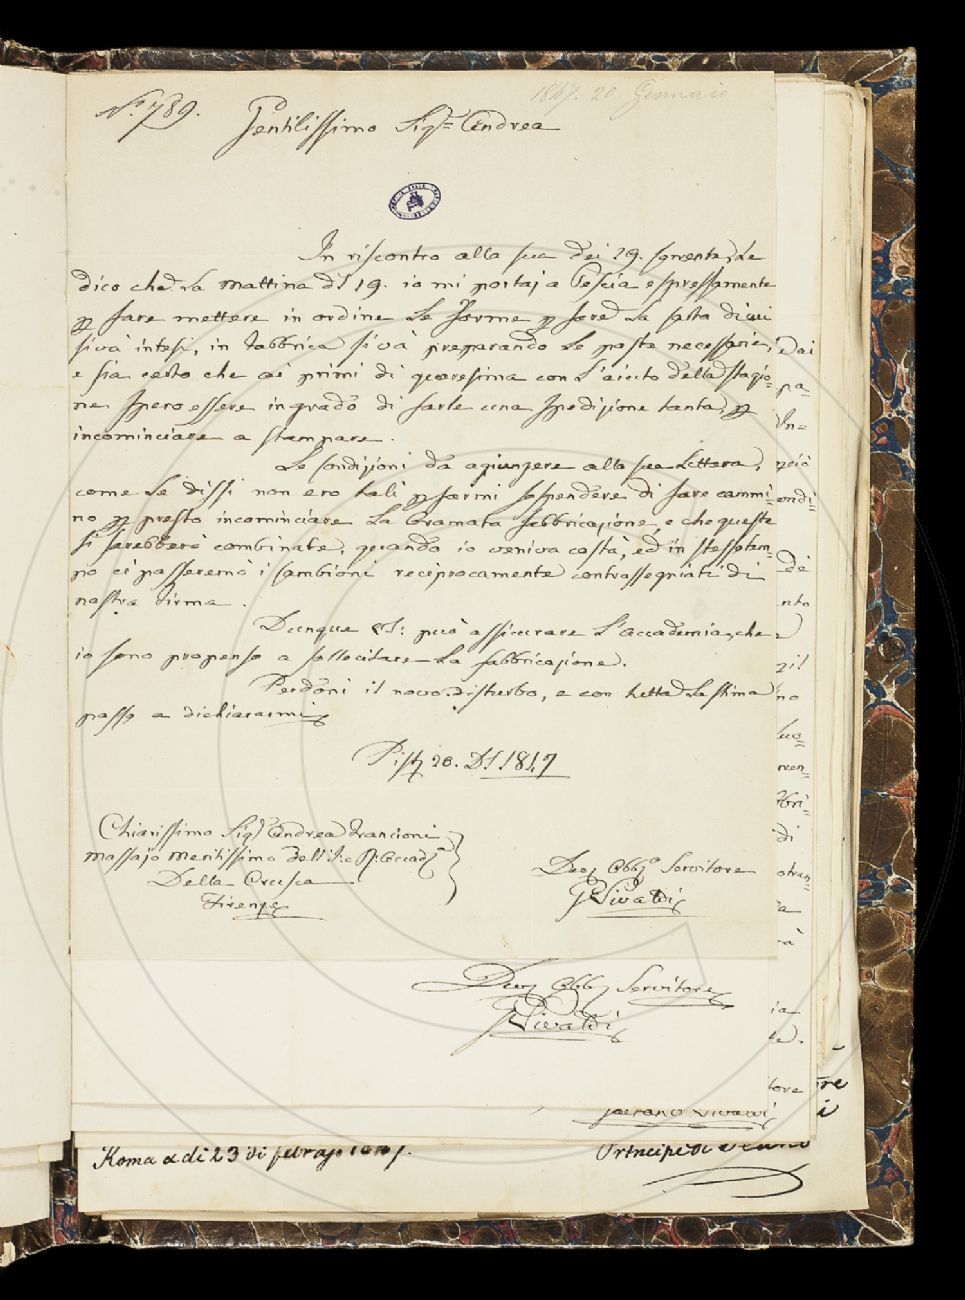 N.º 789.
1847. 20 Gennaio
Gentilissimo Sig.r Andrea
In riscontro alla sua dei 19. Le
dico che La mattina d 19. io mi portai a Pescia espressamente
p fare mettere in ordine Le Forme p La pasta di cui
si và intesi, in Fabbrica si và preparando Le paste necessarie,
e sia certo che ai primi di quaresima con L'aiuto della stagio=
ne spero essere in grado di farle una spedizione tanta p
incominciare a stampare.
Le Condizioni da agiungere alla sua Lettera,
come Le dissi non ero tali p farmi sospendere di fare cammi=
no p presto incominciare La bramata fabbricazione, e che queste
si sarebbero combinate, quando io veniva costà, ed in stesso tem=
po ci passeremo i reciprocamente contrassegniati di
nostra Firma.
Dunque può assicurare L'accademia, che
io sono propenso a sollecitare La fabbricazione.
Perdoni il novo disturbo, e con tutta La stima
passo a dichiararmi
20. 1847
Chiarissimo Sig.r Andrea Francioni
Massajo Meritissimo dell'I. e R. Accad.a
Della Crusca
Firenze
Obb.o Servitore
G Vivaldi
Servitore
G Vivaldi
Gaetano Vivaldi
Roma a di 23 di
Principe di